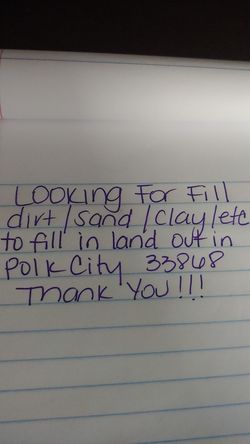 Looking For Fill
dirt/sand/clay/etc
to fill in land out in
Polk City 33868
Thank You!!!